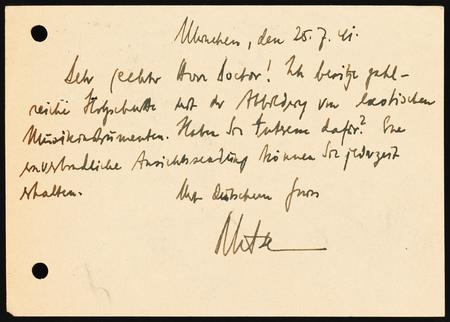 München, den 25. 7. 41.
Sehr geehrter Herr Doctor! Ich besitze zahl-
reiche Holzschnitte mit der Abbildung von exotischen
Musikinstrumenten. Haben Sie Interesse dafür? Eine
unverbindliche Ansichtssendung können Sie jederzeit
erhalten. Mit Deutschem Gruss